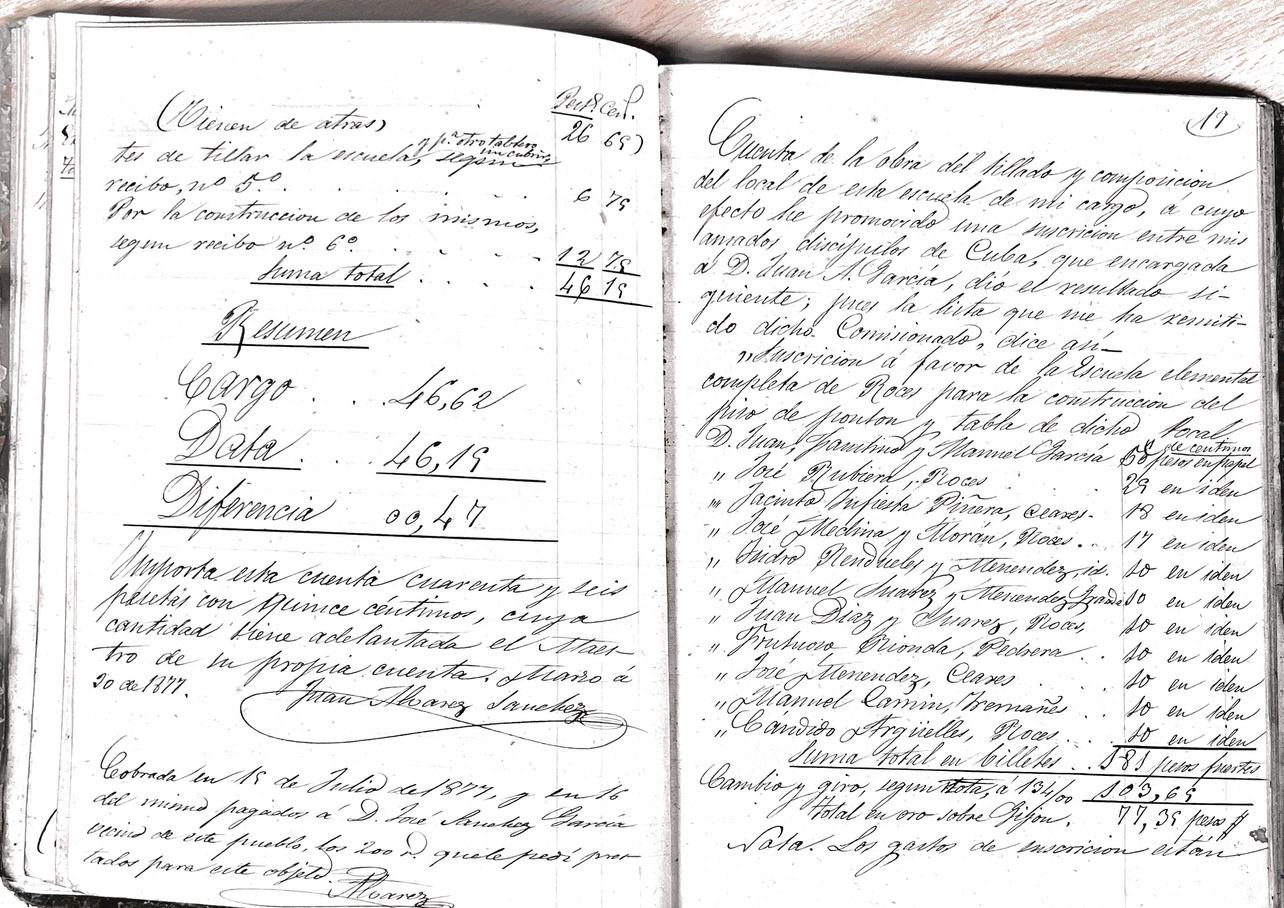 Pests. Cent.
(Vienen de atras, 26 65)
y pª otro tablero
un cubrir
tes de tillar la escuela, segun
recibo, nº 5º. . . . . 6 75
Por la construccion de los mismos,
segun recibo nº 6º . . . . . 12 75
Suma total . . . . 46 15
Resumen
Cargo . . . 46,62
Data . . . 46,15
Diferencia 00,47
Ymporta esta cuenta cuarenta y seis
pesetas con quince céntimos, cuya
cantidad tiene adelantada el Maes-
tro de su propia cuenta. Marzo á
20 de 1877.
Juan Alvarez Sanchez
Cobrada en 15 de Julio de 1877, y en 16
del mismo pagados á D. José Sanchez García
vecino de este pueblo, los 200 r. que le pedí pres-
tados para este objeto.
Alvarez
17
Cuenta de la obra del tillado y composicion
del local de esta escuela de mi cargo, á cuyo
efecto he promovido una suscricion entre mis
amados discípulos de Cuba, que encargada
á D. Juan A. García, dió el resultado si-
guiente; pues la lista que me ha remiti-
do dicho Comisionado, dice así—
"Suscricion á favor de la Escuela elemental
completa de Roces para la construccion del
piso de ponton y tabla de dicho local
de centimos
D. Juan, Faustino y Manuel García pesos en papel
" José Rubiera, Roces . . . 25 en iden
" Jacinto Infiesta Piñera, Ceares. 18 en iden
" José Medina y Morán, Roces . . 17 en iden
" Isidro Rendueles y Menendez, id. 10 en iden
" Manuel Suarez y Menendez, Granda 10 en iden
" Juan Diaz y Suarez, Roces, 10 en iden
" Frutuoso Rionda, Pedrera . . 10 en iden
" José Menendez, Ceares . . . 10 en iden
" Manuel Camin, Tremañes . . 10 en iden
" Candido Argüelles, Roces . . . 10 en iden
Suma total en billetes . . 181 pesos fuertes
Cambio y giro, segun nota, á 134/00 103,65
Total en oro sobre Gijon. 77,35 pesos ff
Nota. Los gastos de suscricion están